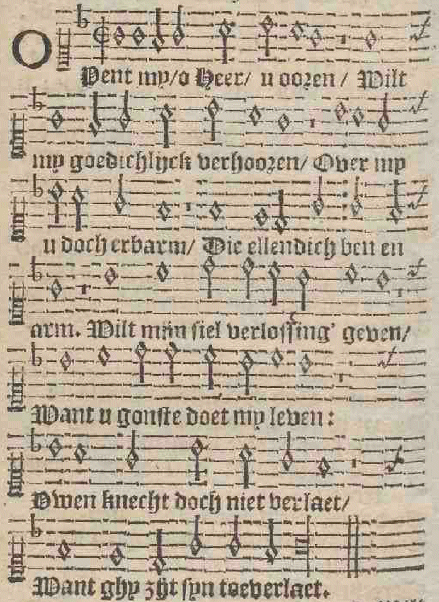 OPent my/o Heer/ u ooren/ Wilt
my goedichlijck verhooren/ Over my
u doch erbarm/ Die ellendich ben en
arm. Wilt mijn siel verlossing' geven/
Want u gonste doet my leven:
Uwen knecht doch niet verlaet/
Want ghy zijt syn toeverlaet.